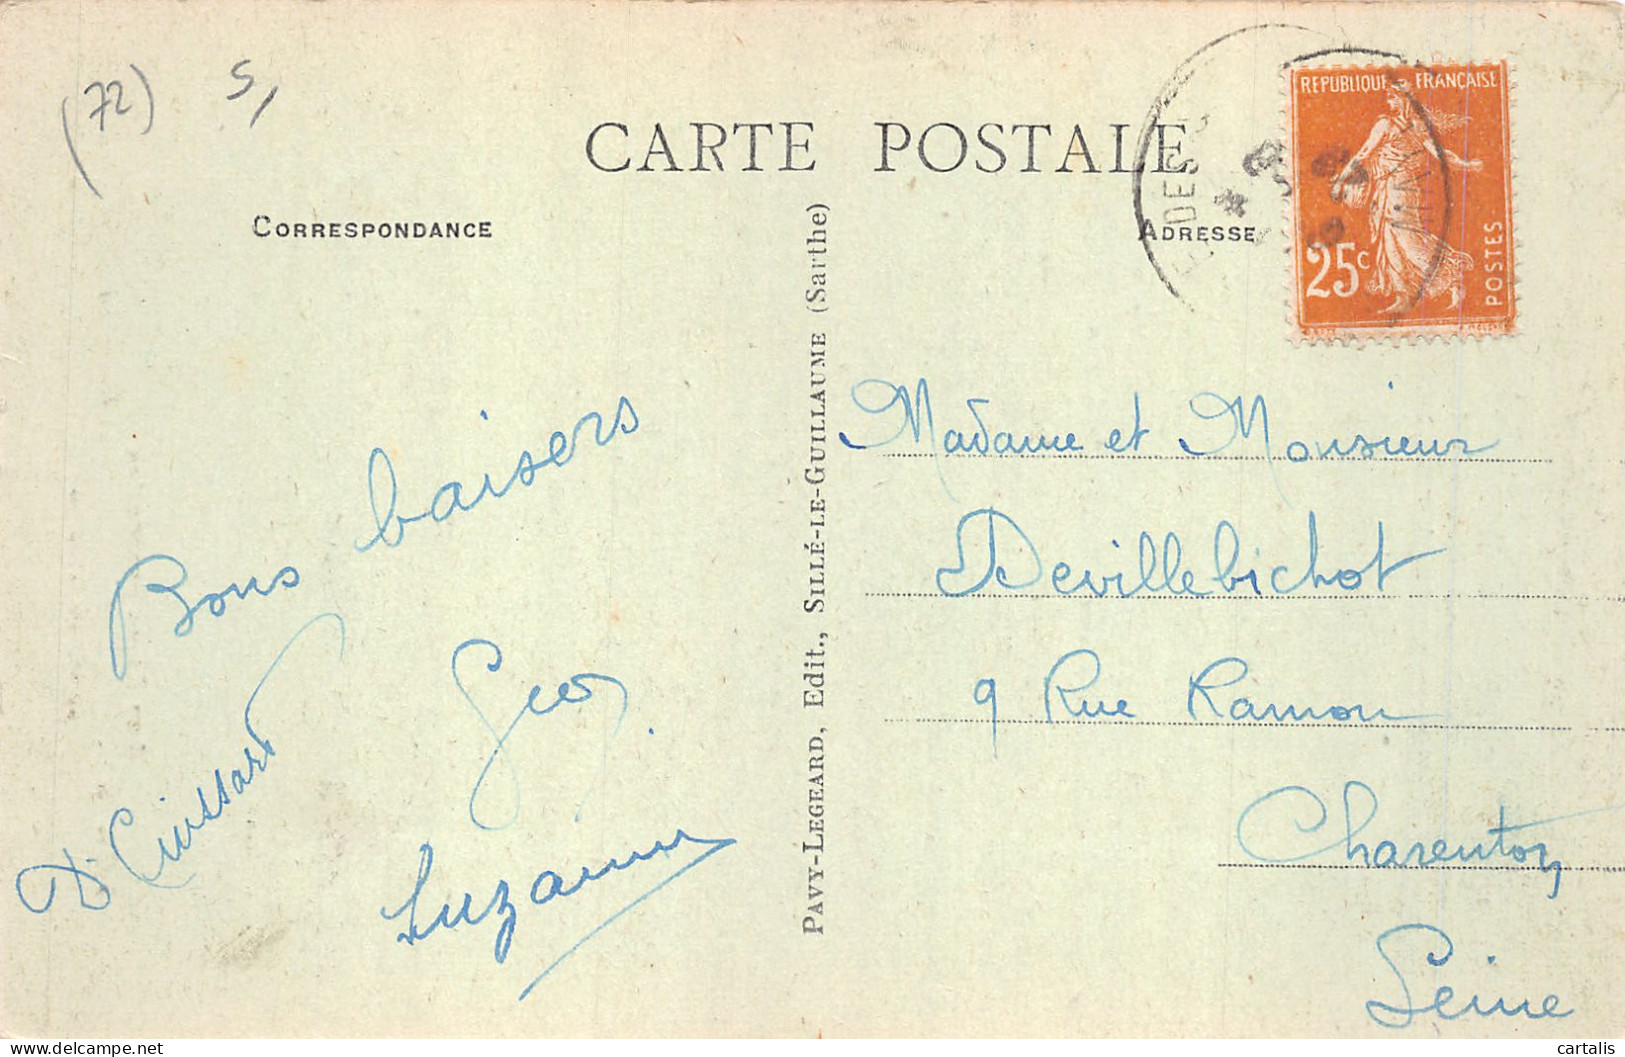 (72) 5,
CARTE POSTALE
CORRESPONDANCE
ADRESSE
RÉPUBLIQUE FRANÇAISE
25c
POSTES
Bons baisers
Geo,
Suzanne
D. Cuissard
PAVY-LEGEARD, Edit., SILLÉ-LE-GUILLAUME (Sarthe)
Madame et Monsieur
Devillebichot
9 Rue Ramon
Charenton
Seine
cartalis